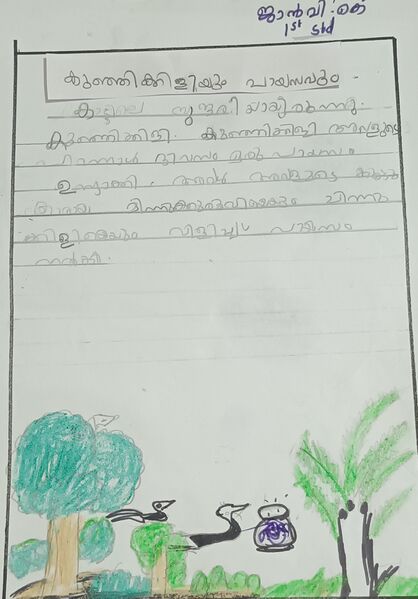 ജാൻവി. കെ
1st Std
കുഞ്ഞിക്കിളിയും പായസവും
കാട്ടിലെ സുന്ദരിയായിരുന്നു
കുഞ്ഞിക്കിളി. കുഞ്ഞിക്കിളി അവളുടെ
പിറന്നാൾ ദിവസം ഒരു പായസം
ഉണ്ടാക്കി. അവൾ അവളുടെ
മിന്നുക്കുരുവിയെയും ചിന്നു
ക്കിളിയെയും വിളിച്ച് പായസം
നൽകി.